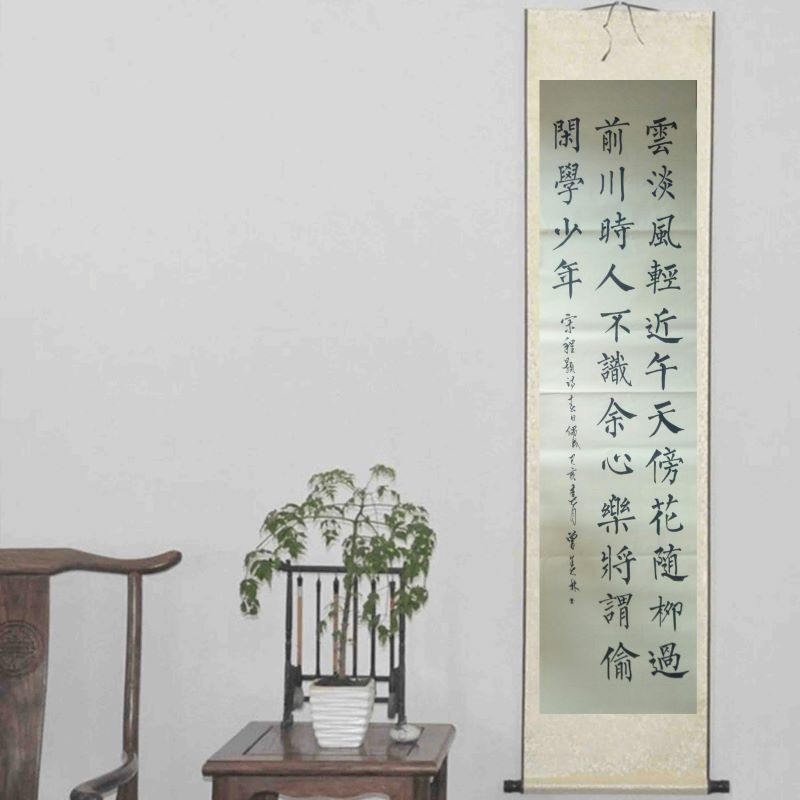 雲淡風輕近午天傍花隨柳過
前川時人不識余心樂將謂偷
閑學少年
宋程顥詩春日偶成己亥春月曾